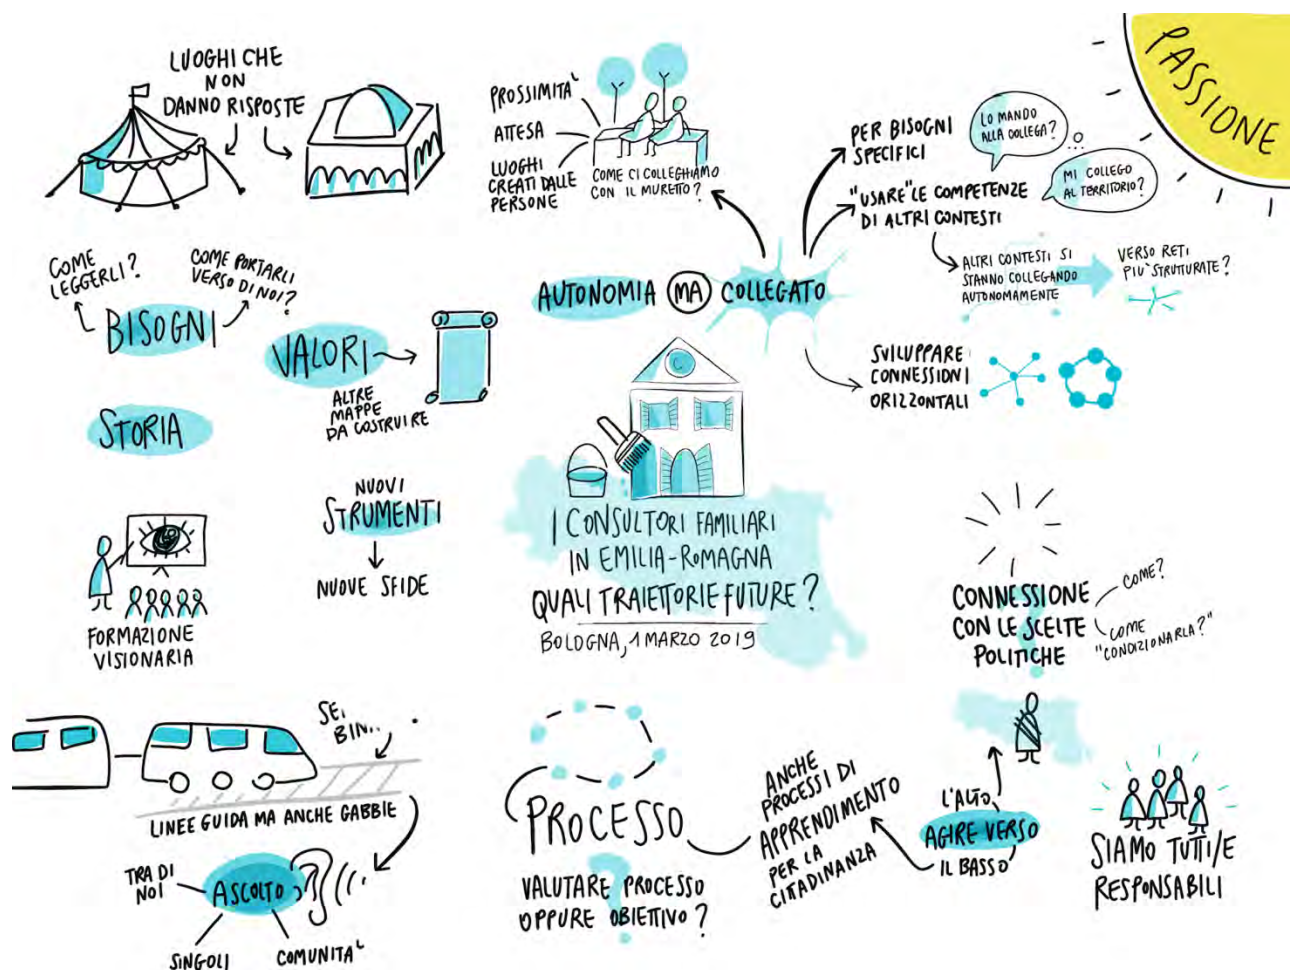 LUOGHI CHE
NON
DANNO RISPOSTE
PROSSIMITÀ
ATTESA
LUOGHI
CREATI DALLE
PERSONE
COME CI COLLEGHIAMO
CON IL MURETTO?
PER BISOGNI
SPECIFICI
LO MANDO
ALLA COLLEGA?
"USARE" LE COMPETENZE
DI ALTRI CONTESTI
MI COLLEGO
AL TERRITORIO?
ALTRI CONTESTI SI
STANNO COLLEGANDO
AUTONOMAMENTE
VERSO RETI
PIÙ STRUTTURATE?
PASSIONE
COME
LEGGERLI?
COME PORTARLI
VERSO DI NOI?
BISOGNI
VALORI
ALTRE
MAPPE
DA COSTRUIRE
AUTONOMIA MA COLLEGATO
SVILUPPARE
CONNESSIONI
ORIZZONTALI
STORIA
NUOVI
STRUMENTI
NUOVE SFIDE
C
I CONSULTORI FAMILIARI
IN EMILIA-ROMAGNA
QUALI TRAIETTORIE FUTURE?
BOLOGNA, 1 MARZO 2019
FORMAZIONE
VISIONARIA
CONNESSIONE
CON LE SCELTE
POLITICHE
COME?
COME
"CONDIZIONARLA?"
LINEE GUIDA MA ANCHE GABBIE
TRA DI
NOI
ASCOLTO
SINGOLI
COMUNITÀ
PROCESSO
VALUTARE PROCESSO
OPPURE OBIETTIVO?
ANCHE
PROCESSI DI
APPRENDIMENTO
PER LA
CITTADINANZA
L'ALTO
AGIRE VERSO
IL BASSO
SIAMO TUTTI/E
RESPONSABILI